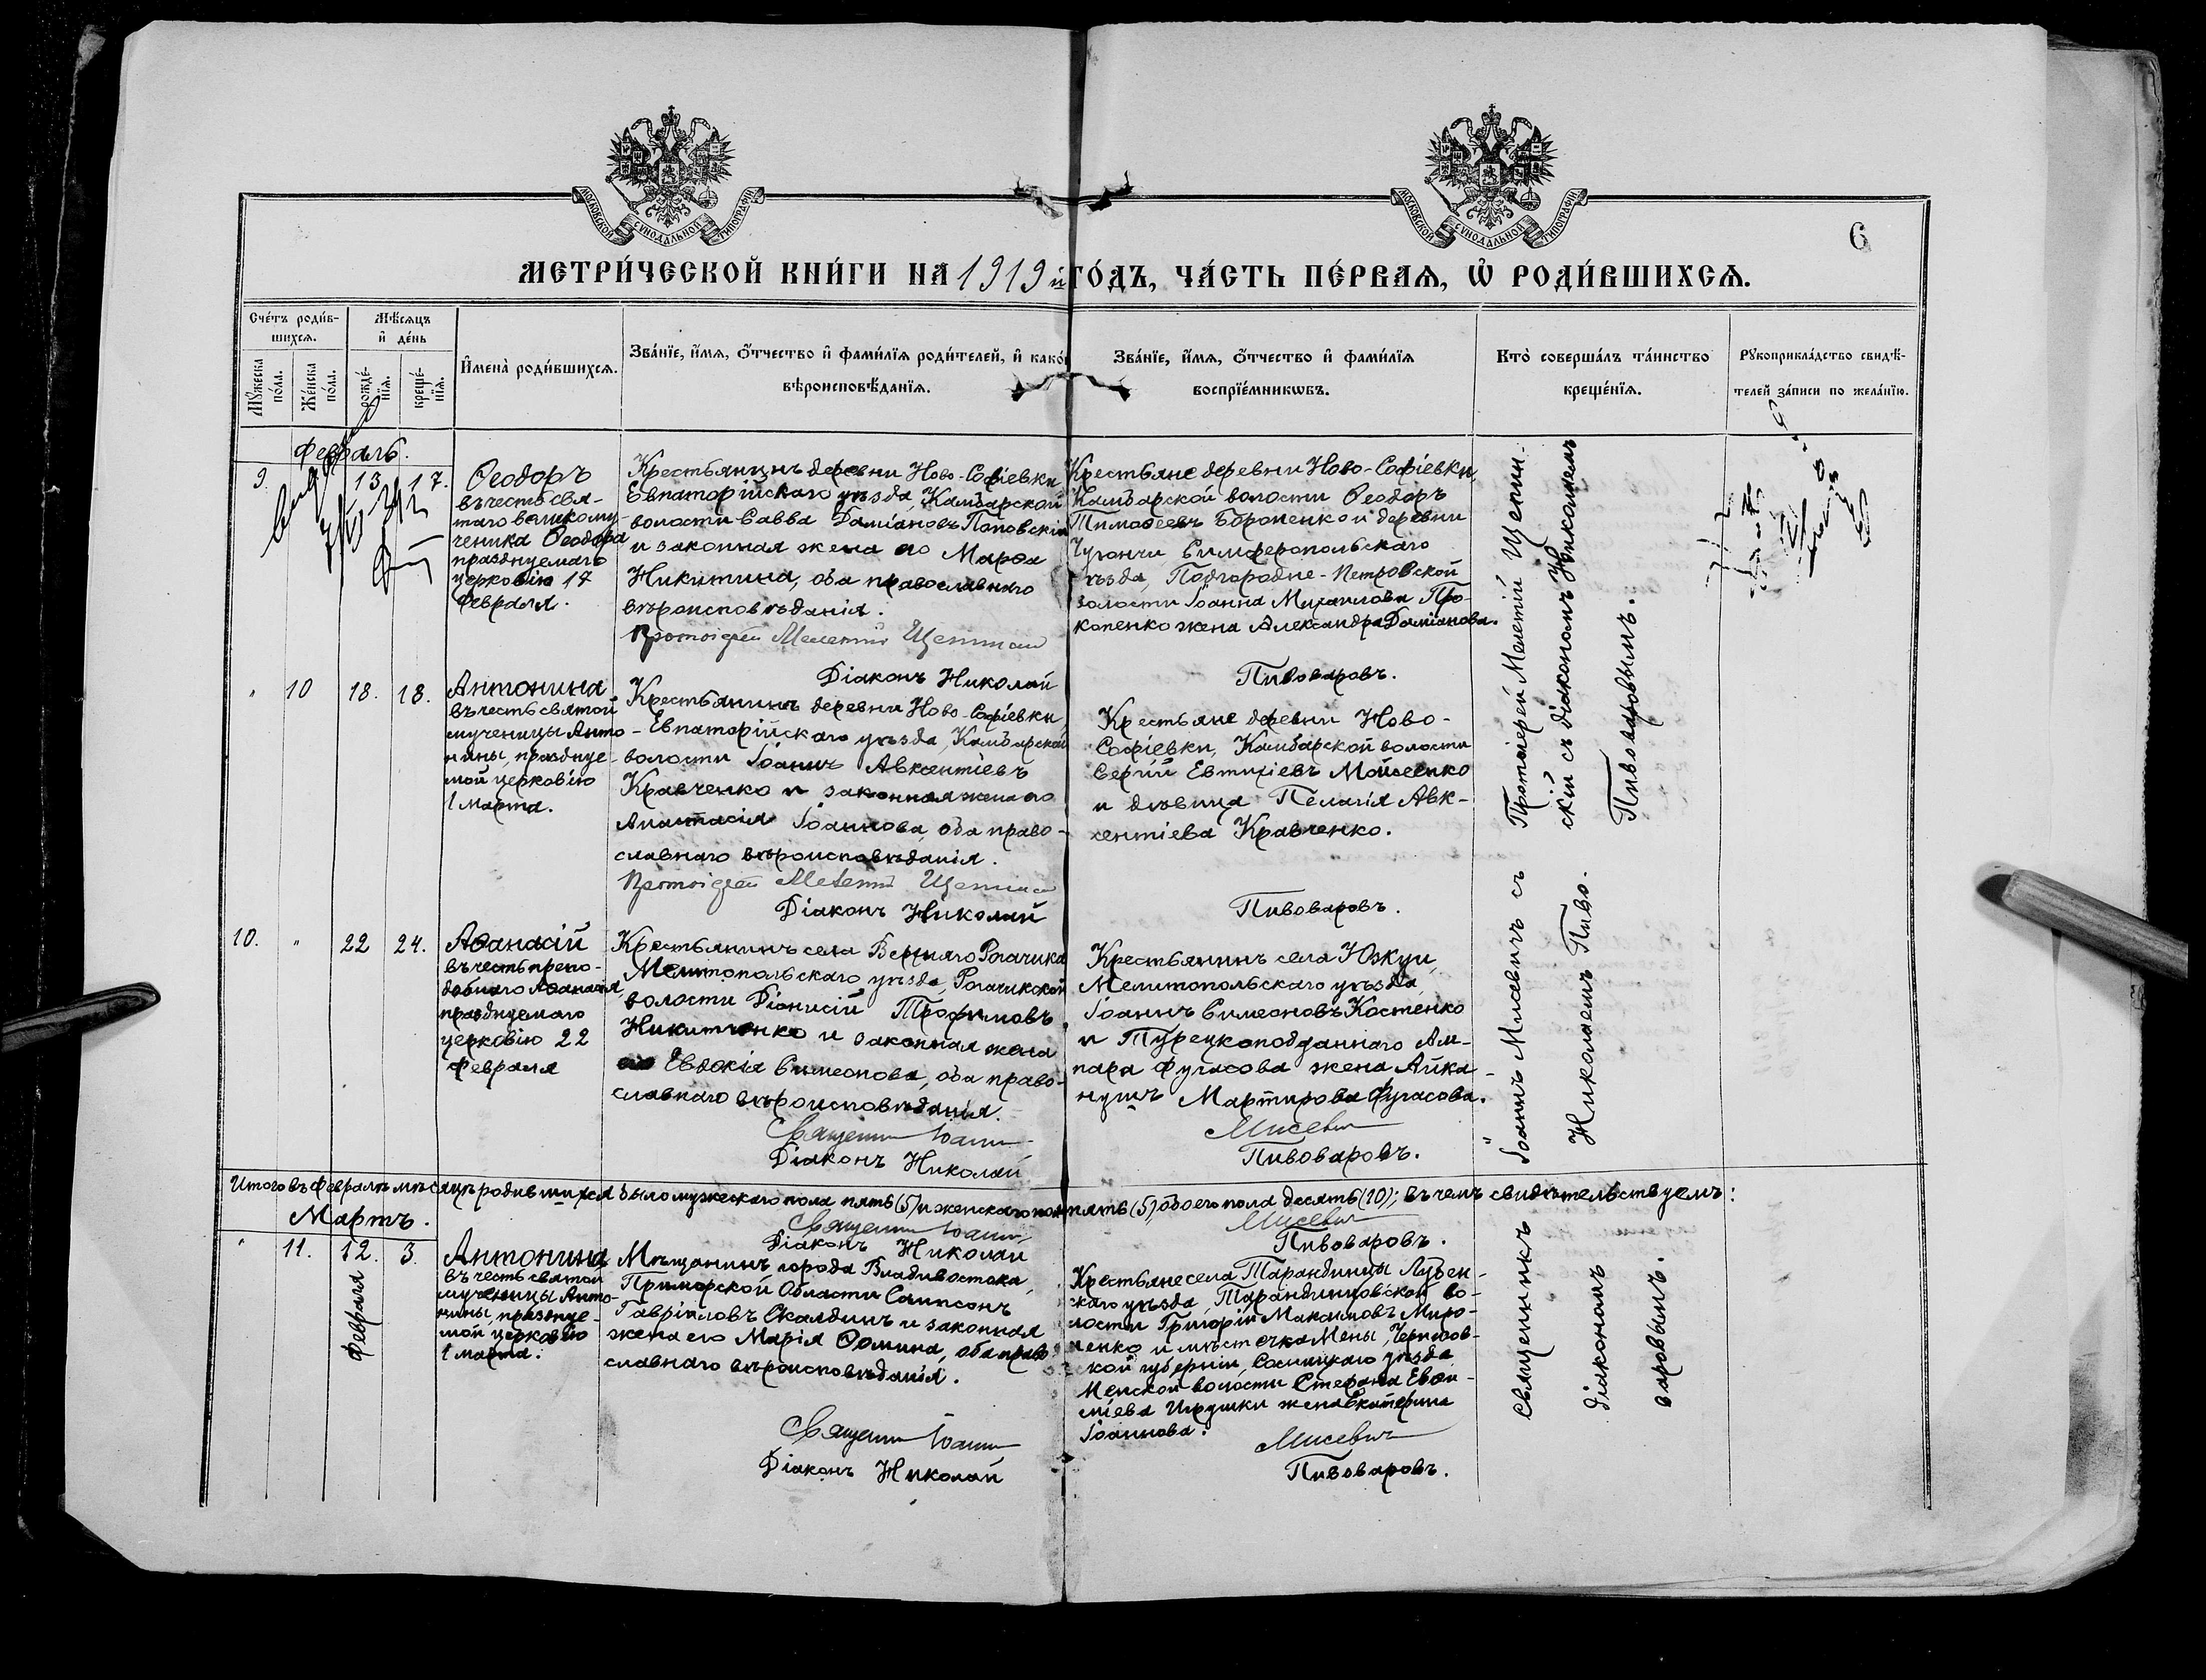 МОСКОВСКОЙ СУНОДАЛЬНОЙ ТИПОГРАФІИ
МОСКОВСКОЙ СУНОДАЛЬНОЙ ТИПОГРАФІИ
6
МЕТРИ́ЧЕСКОЙ КНИ́ГИ НА 1919 й ГО́ДЪ, ЧА́СТЬ ПЕ́РВАѦ, Ѡ҆ РОДИ́ВШИХСѦ.
Сче́тъ роди́в-
шихсѧ.
Мꙋ́жеска по́ла.
Же́нска по́ла.
Мѣ́сѧцъ
и҆ де́нь
рожде́-нїѧ.
креще́-нїѧ.
И҆мена̀ роди́вшихсѧ.
Зва́нїе, и҆́мѧ, ѻ҆́тчество и҆ фами́лїѧ роди́телей, и҆ како́
вѣроисповѣ́данїѧ.
Зва́нїе, и҆́мѧ, ѻ҆́тчество и҆ фами́лїѧ
воспрїе́мникѡвъ.
Кто̀ соверша́лъ та́инство
креще́нїѧ.
Рꙋкоприкла́дство свидѣ́-
телей за́писи по жела́нїю.
Февраль.
9.
13
17.
Ѳеодоръ
въ честь свя-
таго великому-
ченика Ѳеодора
празднуемаго
церковію 17
февраля.
Крестьянинъ деревни Ново-Софіевки
Евпаторійскаго уѣзда, Камбарской
волости Савва Даміановъ Поповскій
и законная жена его Марѳа
Никитина, оба православнаго
вѣроисповѣданія.
Протоіерей Мелетій
Діаконъ Николай
Крестьяне деревни Ново-Софіевки,
Камбарской волости Ѳеодоръ
Тимоѳеевъ Бороненко и деревни
Симферопольскаго
уѣзда, Подгородне-Петровской
волости Іоанна Михаилова Про-
копенко жена Александра Даміанова.
Пивоваровъ.
Протоіерей Мелетій Щепин-
скій съ діакономъ Николаемъ
Пивоваровымъ.
"
10
18.
18.
Антонина
въ честь святой
мученицы Анто-
нины, праздсуе-
мой церковію
1 марта.
Крестьянинъ деревни Ново-Софіевки,
Евпаторійскаго уѣзда, Камбарской
волости Іоаннъ Авксентіевъ
Кравченко и законная жена его
Анастасія Іоаннова, оба право-
славнаго вѣроисповѣданія.
Протоіерей Мелетій
Діаконъ Николай
Крестьяне деревни Ново-
Софіевки, Камбарской волости
Сергій Евтихіевъ Мойсеенко
и дѣвица Пелагія Авк-
сентіева Кравченко.
Пивоваровъ.
10.
"
22
24.
Аѳанасій
въ честь препо-
добнаго Аѳанасія,
празднуемаго
церковію 22
февраля
Крестьянинъ села Верхняго Рогачика
Мелитопольскаго уѣзда, Рогачикской
волости Діонисій Трофимовъ
Никитченко и законная жена
его Евдокія Симеонова, оба право-
славнаго вѣроисповѣданія.
Священникъ Іоаннъ
Діаконъ Николай
Крестьянинъ села Юзкуи,
Мелитопольскаго уѣзда,
Іоаннъ Симеоновъ Костенко
и Турецкоподданнаго Ам-
пара Фугасова жена Айка-
нушъ Мартирова Фугасова.
Мисевич
Пивоваровъ.
Іоаннъ Мисевичъ съ
Николаемъ Пиво-
Итого въ Февралѣ мѣсяцѣ родившихся было мужескаго пола пять (5) и женскаго пола пять (5), обоего пола десять (10); въ чемъ свидѣтельствуемъ:
Священникъ Іоаннъ
Мисевич
Діаконъ Николай
Пивоваровъ.
Мартъ.
"
11.
12.
Февраля
3.
Антонина
въ честь святой
мученицы Анто-
нины, празднуе-
мой церковію
1 марта.
Мѣщанинъ города Владивостока,
Приморской Области Сампсонъ
Гавріиловъ Скалдинъ и законная
жена его Марія Ѳомина, оба право-
славнаго вѣроисповѣданія.
Священникъ Іоаннъ
Діаконъ Николай
Крестьяне села Тарандинцы Лубен-
скаго уѣзда, Тарандинцовской во-
лости Григорій Максимовъ Миро-
ненко и мѣстечка Мены, Чернигов-
кой губерніи, Сосницкаго уѣзда
Менской волости Стефана Евѳи-
міева жена Екатерина
Іоаннова.
Мисевич
Пивоваровъ.
Священникъ
діакономъ
варовымъ.